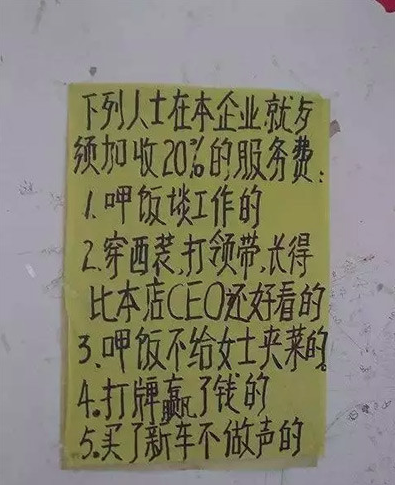 下列人士在本企业就歺
须加收20%的服务费:
1.呷饭谈工作的
2.穿西装,打领带,长得
比本店CEO还好看的
3.呷饭不给女士夹菜的。
4.打牌赢了钱的
5.买了新车不做声的